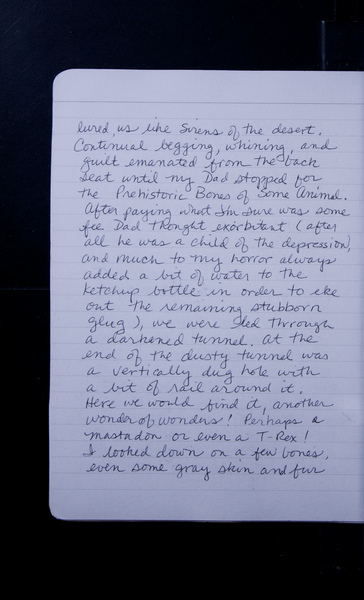 lured us like Sirens of the desert.
Continual begging, whining, and
guilt emanated from the back
seat until my Dad stopped for
the Prehistoric Bones of Some Animal.
After paying what I'm sure was some
fee Dad thought exorbitant (after
all he was a child of the depression,
and much to my horror always
added a bit of water to the
ketchup bottle in order to eke
out the remaining stubborn
glug), we were led through
a darkened tunnel. At the
end of the dusty tunnel was
a vertically dug hole with
a bit of rail around it.
Here we would find it, another
wonder of wonders! Perhaps a
mastadon or even a T-Rex!
I looked down on a few bones,
even some gray skin and fur